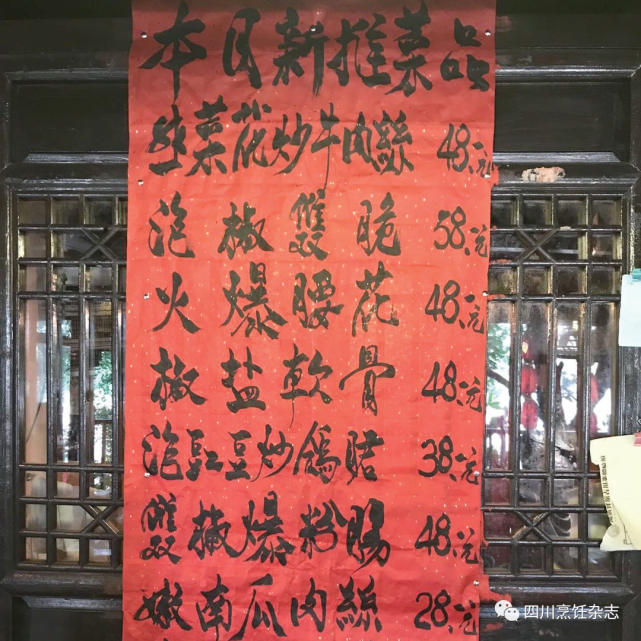 本月新推菜品
韭菜花炒牛肉絲 48.元
泡椒雙脆 58.元
火爆腰花 48.元
椒盐軟骨 48.元
泡豇豆炒鴿胗 38.元
雙椒爆粉腸 48.元
嫩南瓜肉絲 28.元
四川烹饪杂志